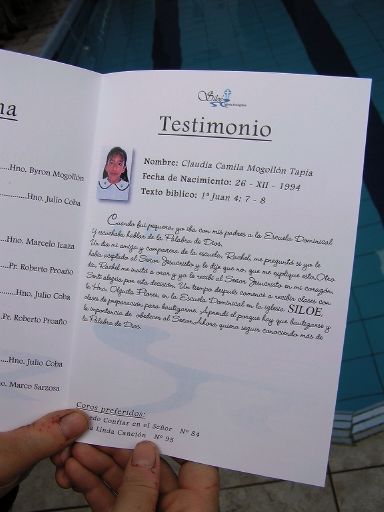 na
......Hno. Byron Mogollón
........Hno. Julio Coba
....Hno. Marcelo Icaza
....Pr. Roberto Proaño
......Hno. Julio Coba
...Pr. Roberto Proaño
...Hno. Julio Coba
...Hno. Marco Sarzosa
Siloé
Testimonio
Nombre: Claudia Camila Mogollón Tapia
Fecha de Nacimiento: 26 - XII - 1994
Texto bíblico: 1ª Juan 4: 7 - 8
Cuando fui pequeña yo iba con mis padres a la Escuela Dominical
y escuchaba hablar de la Palabra de Dios.
Un día mi amiga y compañera de la escuela, Rachel, me preguntó si ya le
había aceptado al Señor Jesucristo y le dije que no que me explique esto. Otro
día, Rachel me invitó a orar y yo le recibí al Señor Jesucristo en mi corazón.
Sentí alegría por esta decisión. Un tiempo después comencé a recibir clases con
la Hna. Olguita Flores, en la Escuela Dominical en la iglesia SILOE,
clases de preparación para bautizarme. Aprendí el porque hay que bautizarse y
la importancia de obedecer al Señor. Ahora quiero seguir conociendo más de
la Palabra de Dios.
Coros preferidos:
Confiar en el Señor Nº 84
Linda Canción Nº 95